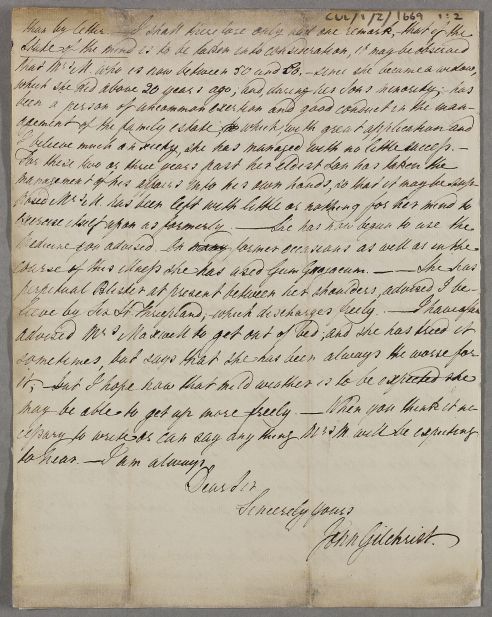 CUL/1/2/1669 1:2
than by letter. — I shall therefore only add one remark, that if the
State of the mind is to be taken into consideration, it may be observed
that Mrs M. who is now between 50 and 60. — since she became a widow,
which she did above 20 years ago; and, during her Sons minority; has
been a person of uncommon exertion and good conduct in the man-
agement of the family estate to which, with great application and
I believe much anxiety, she has managed with no little success. —
For these two or three years past his eldest Son has taken the
management of his affairs into his own hands, so that it may be sup-
posed Mrs M has been left with little or nothing for her mind to
exercise itself upon as formerly. — She has now begun to use the
Medicine you advised. On many former occasions as well as in the
course of this illness she has used Gum Guajacum. — She has a
perpetual Blister at present between her shoulders, advised I be-
lieve by Sir St Threpland; which discharges freely. — I have often
advised Mrs Maxwell to get out of bed, and she has tried it
sometimes, but says that she has been always the worse for
it, — but I hope now that mild weather is to be expected she
may be able to get up more freely. — When you think it ne-
cessary to write or can say any thing Mrs M will be expecting
to hear. — I am always
Dear Sir
Sincerely yours
John Gilchrist.